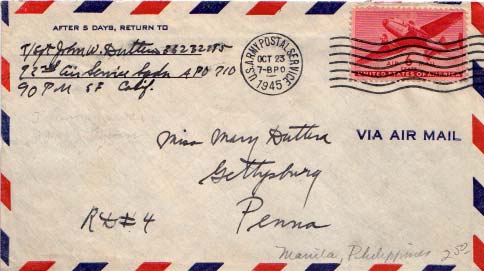 AFTER 5 DAYS, RETURN TO
T/Sgt John W. Duttera 33232285
92nd Air Service Sqdn APO 710
90 P.M. SF Calif.
U.S. ARMY POSTAL SERVICE
OCT 23
7-8PO
1945
6
UNITED STATES OF AMERICA
VIA AIR MAIL
Miss Mary Duttera
Gettysburg
R.D.# 4
Penna
Manila, Philippines 250